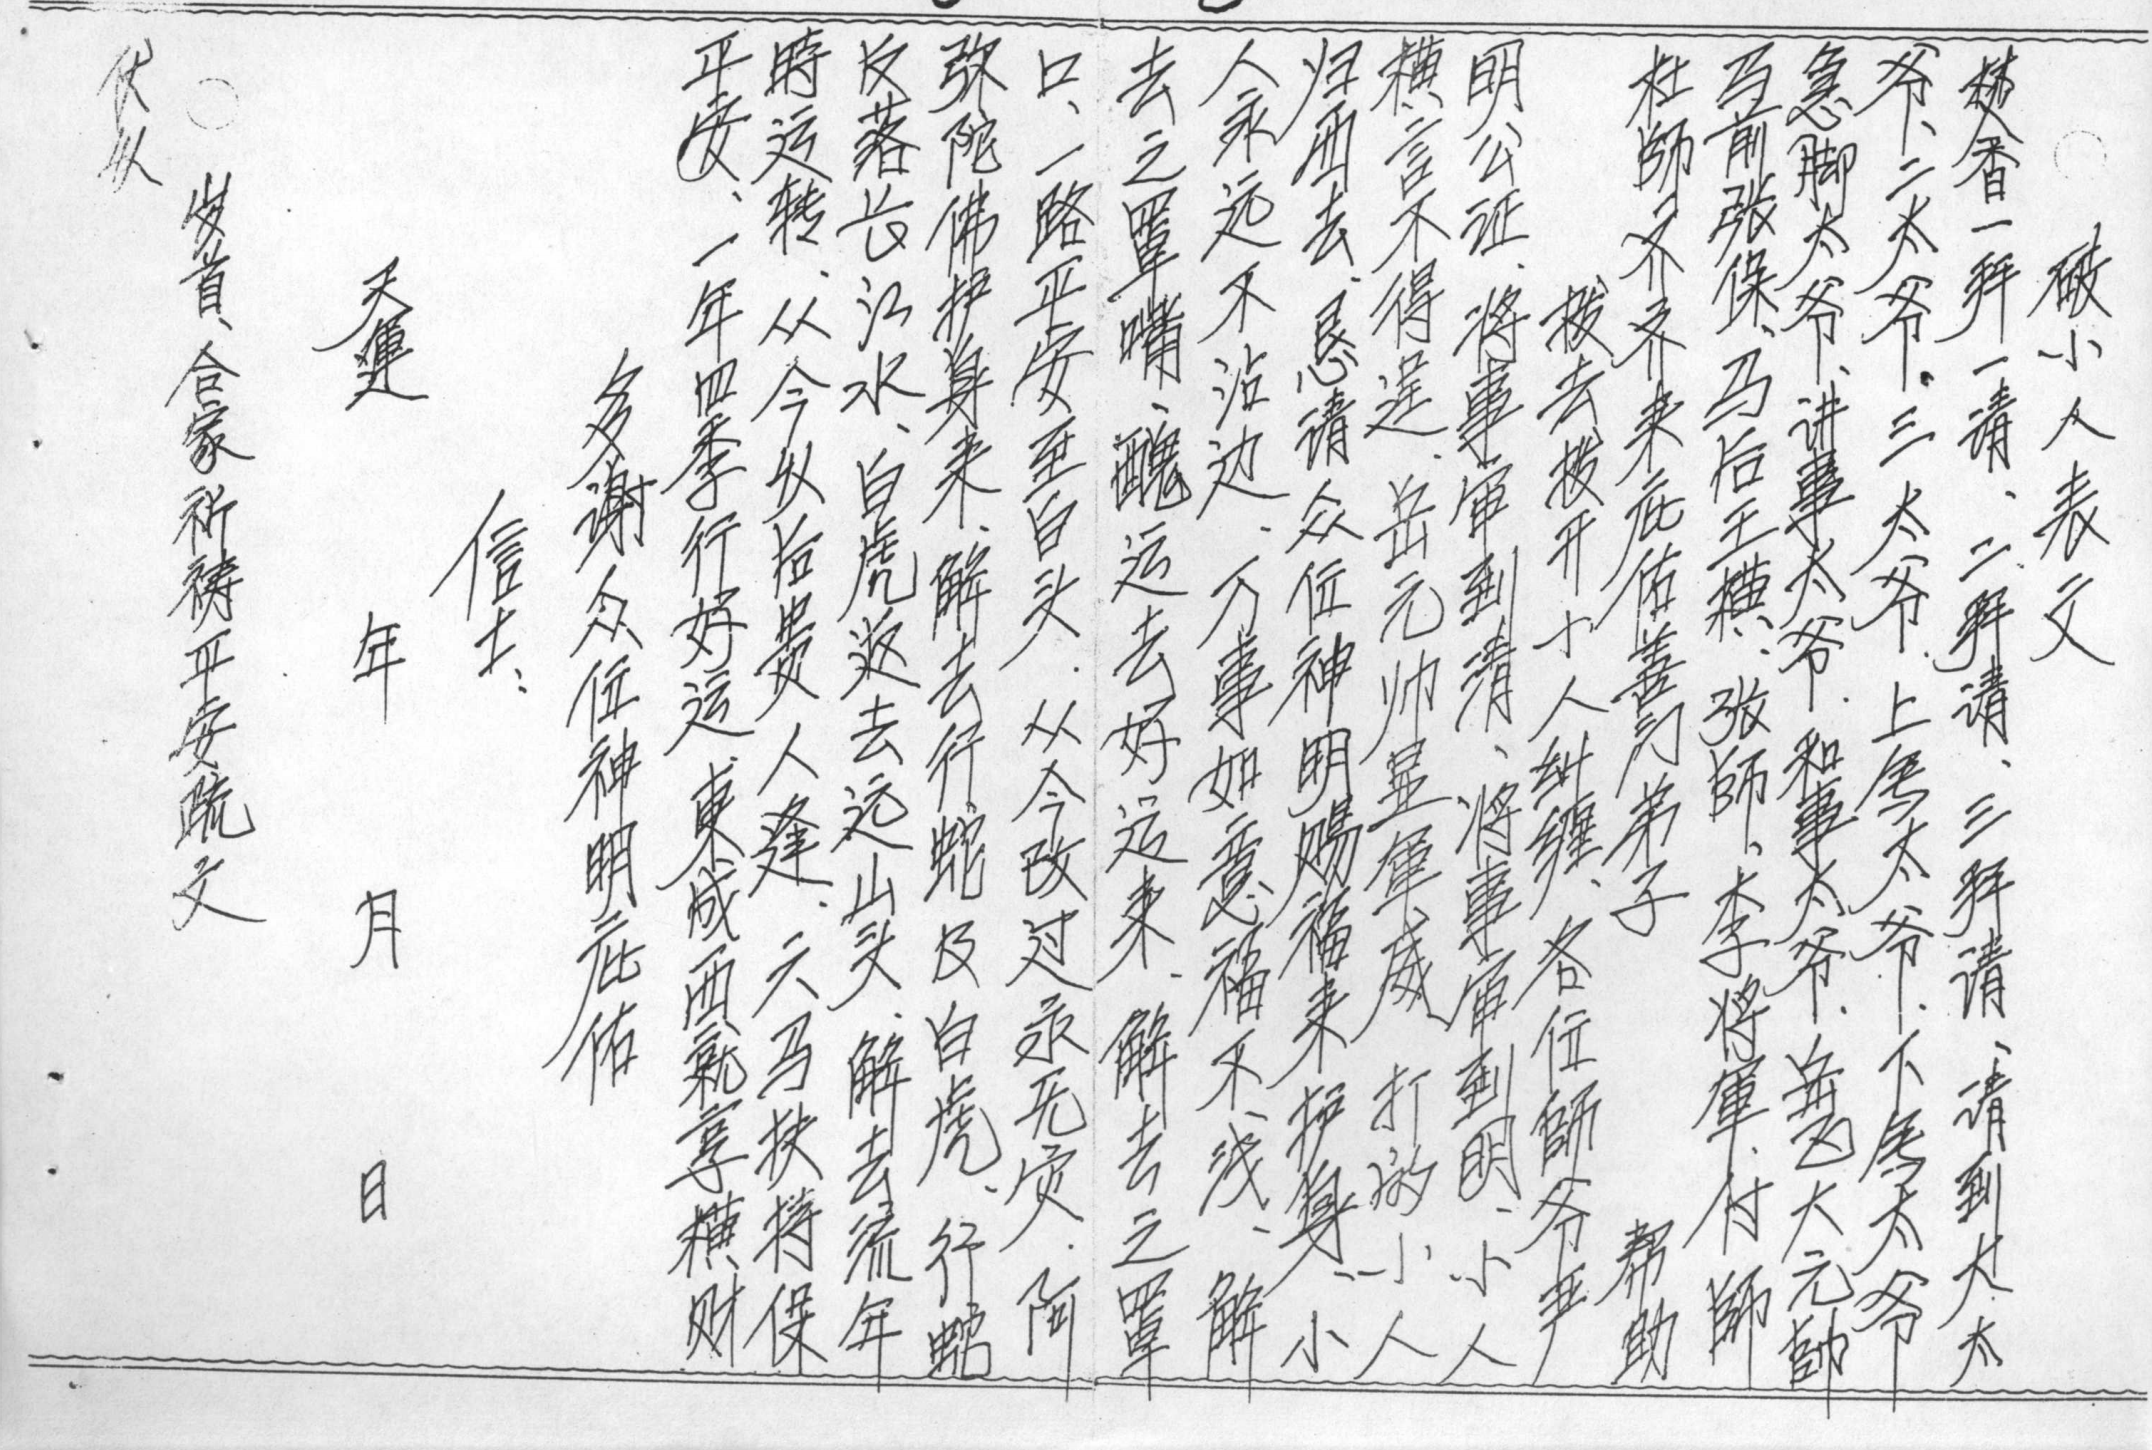 破小人表文
焚香一拜一请、二拜请、三拜请、请到大太
爷、二太爷、三太爷、上馬太爷、下馬太爷
急脚太爷、讲事太爷、和事太爷、岳飞大元帥
马前张保、马后王横、张師、李将軍、付師
杜師、齐齐来庇佑善门弟子 帮助
拨去拨开小人纠缠、各位師爷严
明公证、将事审到清、将事审到明、小人
横言不得逞、岳元帅显軍威 打的小人
归西去、恳请众位神明赐福来护身、小
人永远不沾边、万事如意福不浅、解
去之罩嘴、醜运去好运来、解去之罩
口、一路平安至白头、从今改过永无灾、阿
弥陀佛护身来、解去行蛇及白虎、行蛇
反落长江水、白虎返去远山头、解去流年
時运转、从今以后贵人逢、六马扶持保
平安、一年四季行好运、東成西就享横财
多谢众位神明庇佑
信士、
天運 年 月 日
发首、合家祈祷平安疏文
伏以